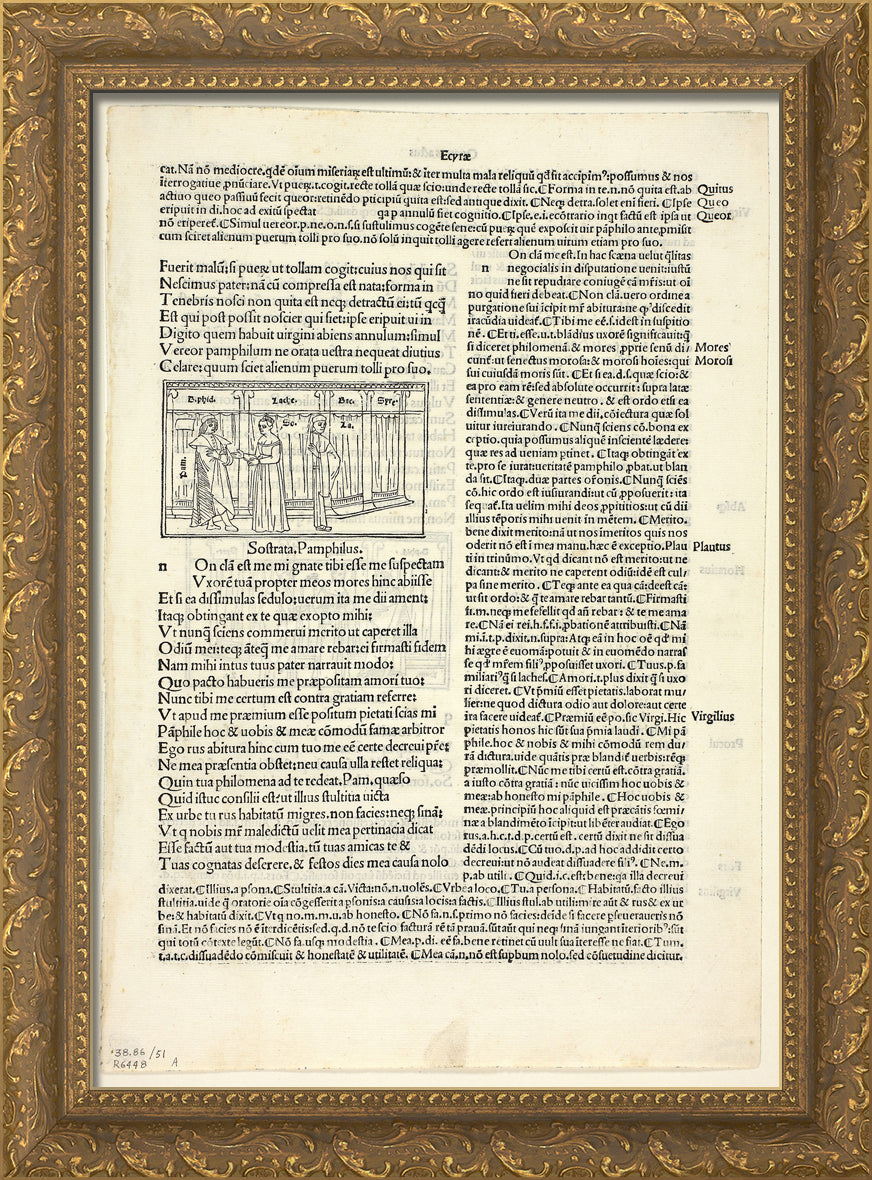 Ecyræ
cat. Nā nō mediocre. qđē oīum miseriaꝝ est ultimū: & īter multa mala reliquū qđ sit accipim⁹: possumus & nos
īterrogatiue ꝓnūciare. Vt pueꝝ. t. cogit. recte tollā quæ scio: unde recte tollā sic. ℂForma in te. n. nō quita est. ab
actiuo queo passiuū fecit queor: retinēdo pticipiū quita est: sed antique dixit. ℂNeqꝫ detra. solet eni fieri. ℂIpse
eripuit in di. hoc ad exitū spectat qa p annulū fiet cognitio. ℂIpse. e. i. ecōtrario inqt factū est ipsa ut
nō eriperet. ℂSimul uereor. p. ne. o. n. s. ū sustulimus cogēte sene: cū pueꝝ quē exposcit uir pāphilo ante. pmisit
cum sciret alienum puerum tolli pro suo. nō solū inquit tolli agere refert alienum uirum etiam pro suo.
Quitus
Queo
Queor
Fuerit malū: si pueꝝ ut tollam cogit: cuius nos qui sit
Nescimus pater: nā cū compressa est nata: forma in
Tenebris nosci non quita est neqꝫ detractū ei: tū qcꝗ
Est qui post possit noscier qui siet: ipse eripuit ui in
Digito quem habuit virgini abiens annulum: simul
Vereor pamphilum ne orata uestra nequeat diutius
Celare: quum sciet alienum puerum tolli pro suo.
B. phid.
Lache.
Bac.
Syre.
So.
La.
Pam.
Sostrata. Pamphilus.
n On clā est me mi gnate tibi esse me suspectam
Vxorē tuā propter meos mores hinc abiisse
Et si ea dissimulas sedulo: uerum ita me dii ament:
Itaqꝫ obtingant ex te quæ exopto mihi:
Vt nunꝗ sciens commerui merito ut caperet illa
Odiū mei: teqꝫ āteꝗ me amare rebar: ei firmasti fidem
Nam mihi intus tuus pater narrauit modo:
Quo pacto habueris me præpositam amori tuo:
Nunc tibi me certum est contra gratiam referre:
Vt apud me præmium esse positum pietati scias mi
Pāphile hoc & uobis & meæ cōmodū famæ arbitror
Ego rus abitura hinc cum tuo me eē certe decreui p̄re:
Ne mea præsentia obstet: neu causa ulla restet reliqua:
Quin tua philomena ad te redeat. Pam. quæso
Quid istuc consilii est: ut illius stultitia uicta
Ex urbe tu rus habitatū migres. non facies: neqꝫ sinā:
Vt q nobis mr̄ maledictū uelit mea pertinacia dicat
Esse factū aut tua modestia. tū tuas amicas te &
Tuas cognatas deserere, & festos dies mea causa nolo
On clā me est. In hac scæna uelut q̄litas
n negocialis in disputatione uenit: iustū
ne sit repudiare coniugē cā mr̄is: ut oī
no quid fieri debeat. ℂNon clā. uero ordine a
purgatione sui īcipit mr̄ abitura: ne q⁹ discedit
iracūdia uideat̄. ℂTibi me eē. s. id est in suspitio
nē. ℂEt ti. esse. u. t. blādius uxorē significauit: ꝗ
si diceret philomenā. & mores ꝓprie senū di/
cunt̄: ut senectus morosa: & morosi hoīes: qui
sui cuiusdā moris sūt. ℂEt si ea. d. s. quæ scio: &
ea pro eam rē: sed absolute occurrit: supra latæ
sententiæ: & genere neutro. & est ordo etsi ea
dissimulas. ℂVerū ita me dii, cōiectura quæ sol
uitur iureiurando. ℂNunꝗ sciens cō. bona ex
ceptio. quia possumus aliquē insciente lædere:
quæ res ad ueniam ptinet. ℂItaqꝫ obtingāt ex
te. pro se iurat: ueritatē pamphilo ꝓbat. ut blan
da sit. ℂItaqꝫ. duæ partes oŕonis. ℂNunꝗ sciēs
cō. hic ordo est iusiurandi: ut cū ꝓposuerit: ita
sequat̄. Ita uelim mihi deos ꝓpititios: ut cū dii
illius tēporis mihi uenit in mētem. ℂMerito.
bene dixit merito: nā ut nos imeritos quis nos
oderit nō est i mea manu. hæc ē exceptio. Plau
ti in trinūmo. Vt qđ dicant nō est merito: ut ne
dicant: & merito ne caperent odiū: idē est cul/
pa sine merito. ℂTeqꝫ ante ea qua cā: deest cā:
ut sit ordo: & ꝗ̄ te amare rebar tantū. ℂFirmasti
fi. m. neqꝫ me fefellit qđ an̄ rebar: & te me ama
re. ℂNā ei rei. h. f. f. i. ꝓbationē attribuisti. ℂNā
mi. ā. t. p. dixit. n. supra: Atqꝫ eā in hoc oē qđ mi
hi ægre ē euomā: potuit & in euomēdo narras
se qđ mr̄em fili⁹. pposuisset uxori. ℂTuus. p. fa
miliari⁹ ꝗ̄ si laches. ℂAmori. t. plus dixit ꝗ̄ si uxo
ri diceret. ℂVt p̄miū esset pietatis. laborat mu/
lier: ne quod dictura odio aut dolore: aut certe
ira facere uideat̄. ℂPræmiū eē po. sic Virgi. Hic
pietatis honos hic sūt sua p̄mia laudi. ℂMi pā
phile. hoc & nobis & mihi cōmodū rem du/
rā dictura. uide quātis præ blandit̄ uerbis: rēqꝫ
præmollit. ℂNūc me tibi certū est. cōtra gratiā.
a iusto cōtra gratiā: nūc uicissim hoc uobis &
meæ: ab honesto mi pāphile. ℂHoc uobis &
meæ. principiū hoc aliquid est præcatiōis fœmi/
næ a blandimēto īcipit: ut libēter audiat. ℂEgo
rus. a. h. c. t. d. p. certū est. certū dixit ne sit dissua
dēdi locus. ℂCū tuo. d. p. ad hoc addidit certo
decreui: ut nō audeat dissuadere fili⁹. ℂNe. m.
p. ab utili. ℂQuid. i. c. est: bene: ga illa decreui
Mores
Morosi
Plautus
Virgilius
dixerat. ℂIllius. a psona. ℂStultitia. a cā. Victa: nō. n. uolēs. ℂVrbe a loco. ℂTu. a persona. ℂHabitatū. facto illius
stultitia. uide ꝗ̄ oratorie oīa cōgesserit a psonis: a causis: a locis: a factis. ℂIllius stul. ab utili: mirare aūt & rus & ex ur
be: & habitatū dixit. ℂVt q no. m. m. u. ab honesto. ℂNō fa. n. s. primo nō facies: deīde si facere pseueraueris nō
sinā. Et nō facies nō ē īterdicētis: sed. q. d. nō te scio facturā rē tā prauā. sūt aūt qui neqꝫ sinā iungant īteriorib⁹: sūt
qui totū cōtexte legūt. ℂNō fa. usqꝫ modestia. ℂMea. p. di. eē fa. bene retinet cū uult sua īteresse ne fiat. ℂTum.
t. a. t. c. dissuadēdo cōmiscuit & honestatē & utilitatē. ℂMea cā. n. nō est supbum nolo. sed cōsuetudine dicitur.
38.86/51
R6448 A